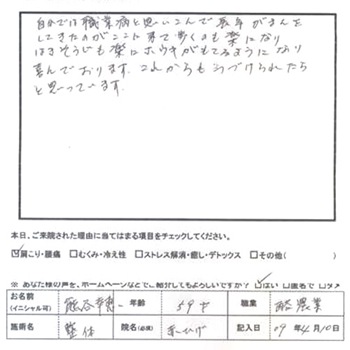 自分では職業病と思いこんで長年がまんを
してきたのがここに来て歩くのも楽になり
はきそうじも楽にホウキがもてるようになり
喜んでおります。これからもつづけられたら
と思っています。
本日、ご来院された理由に当てはまる項目をチェックしてください。
☑肩こり・腰痛 □むくみ・冷え性 □ストレス解消・癒し・デトックス □その他( )
※ あなた様の声を、ホームページなどでご紹介してもよろしいですか? □はい □匿名で □ダメ
お名前 (イニシャル可) 熊谷 年齢 59才 職業 酪農業
施術名 整体 院名(必須) 記入日 19年4月10日